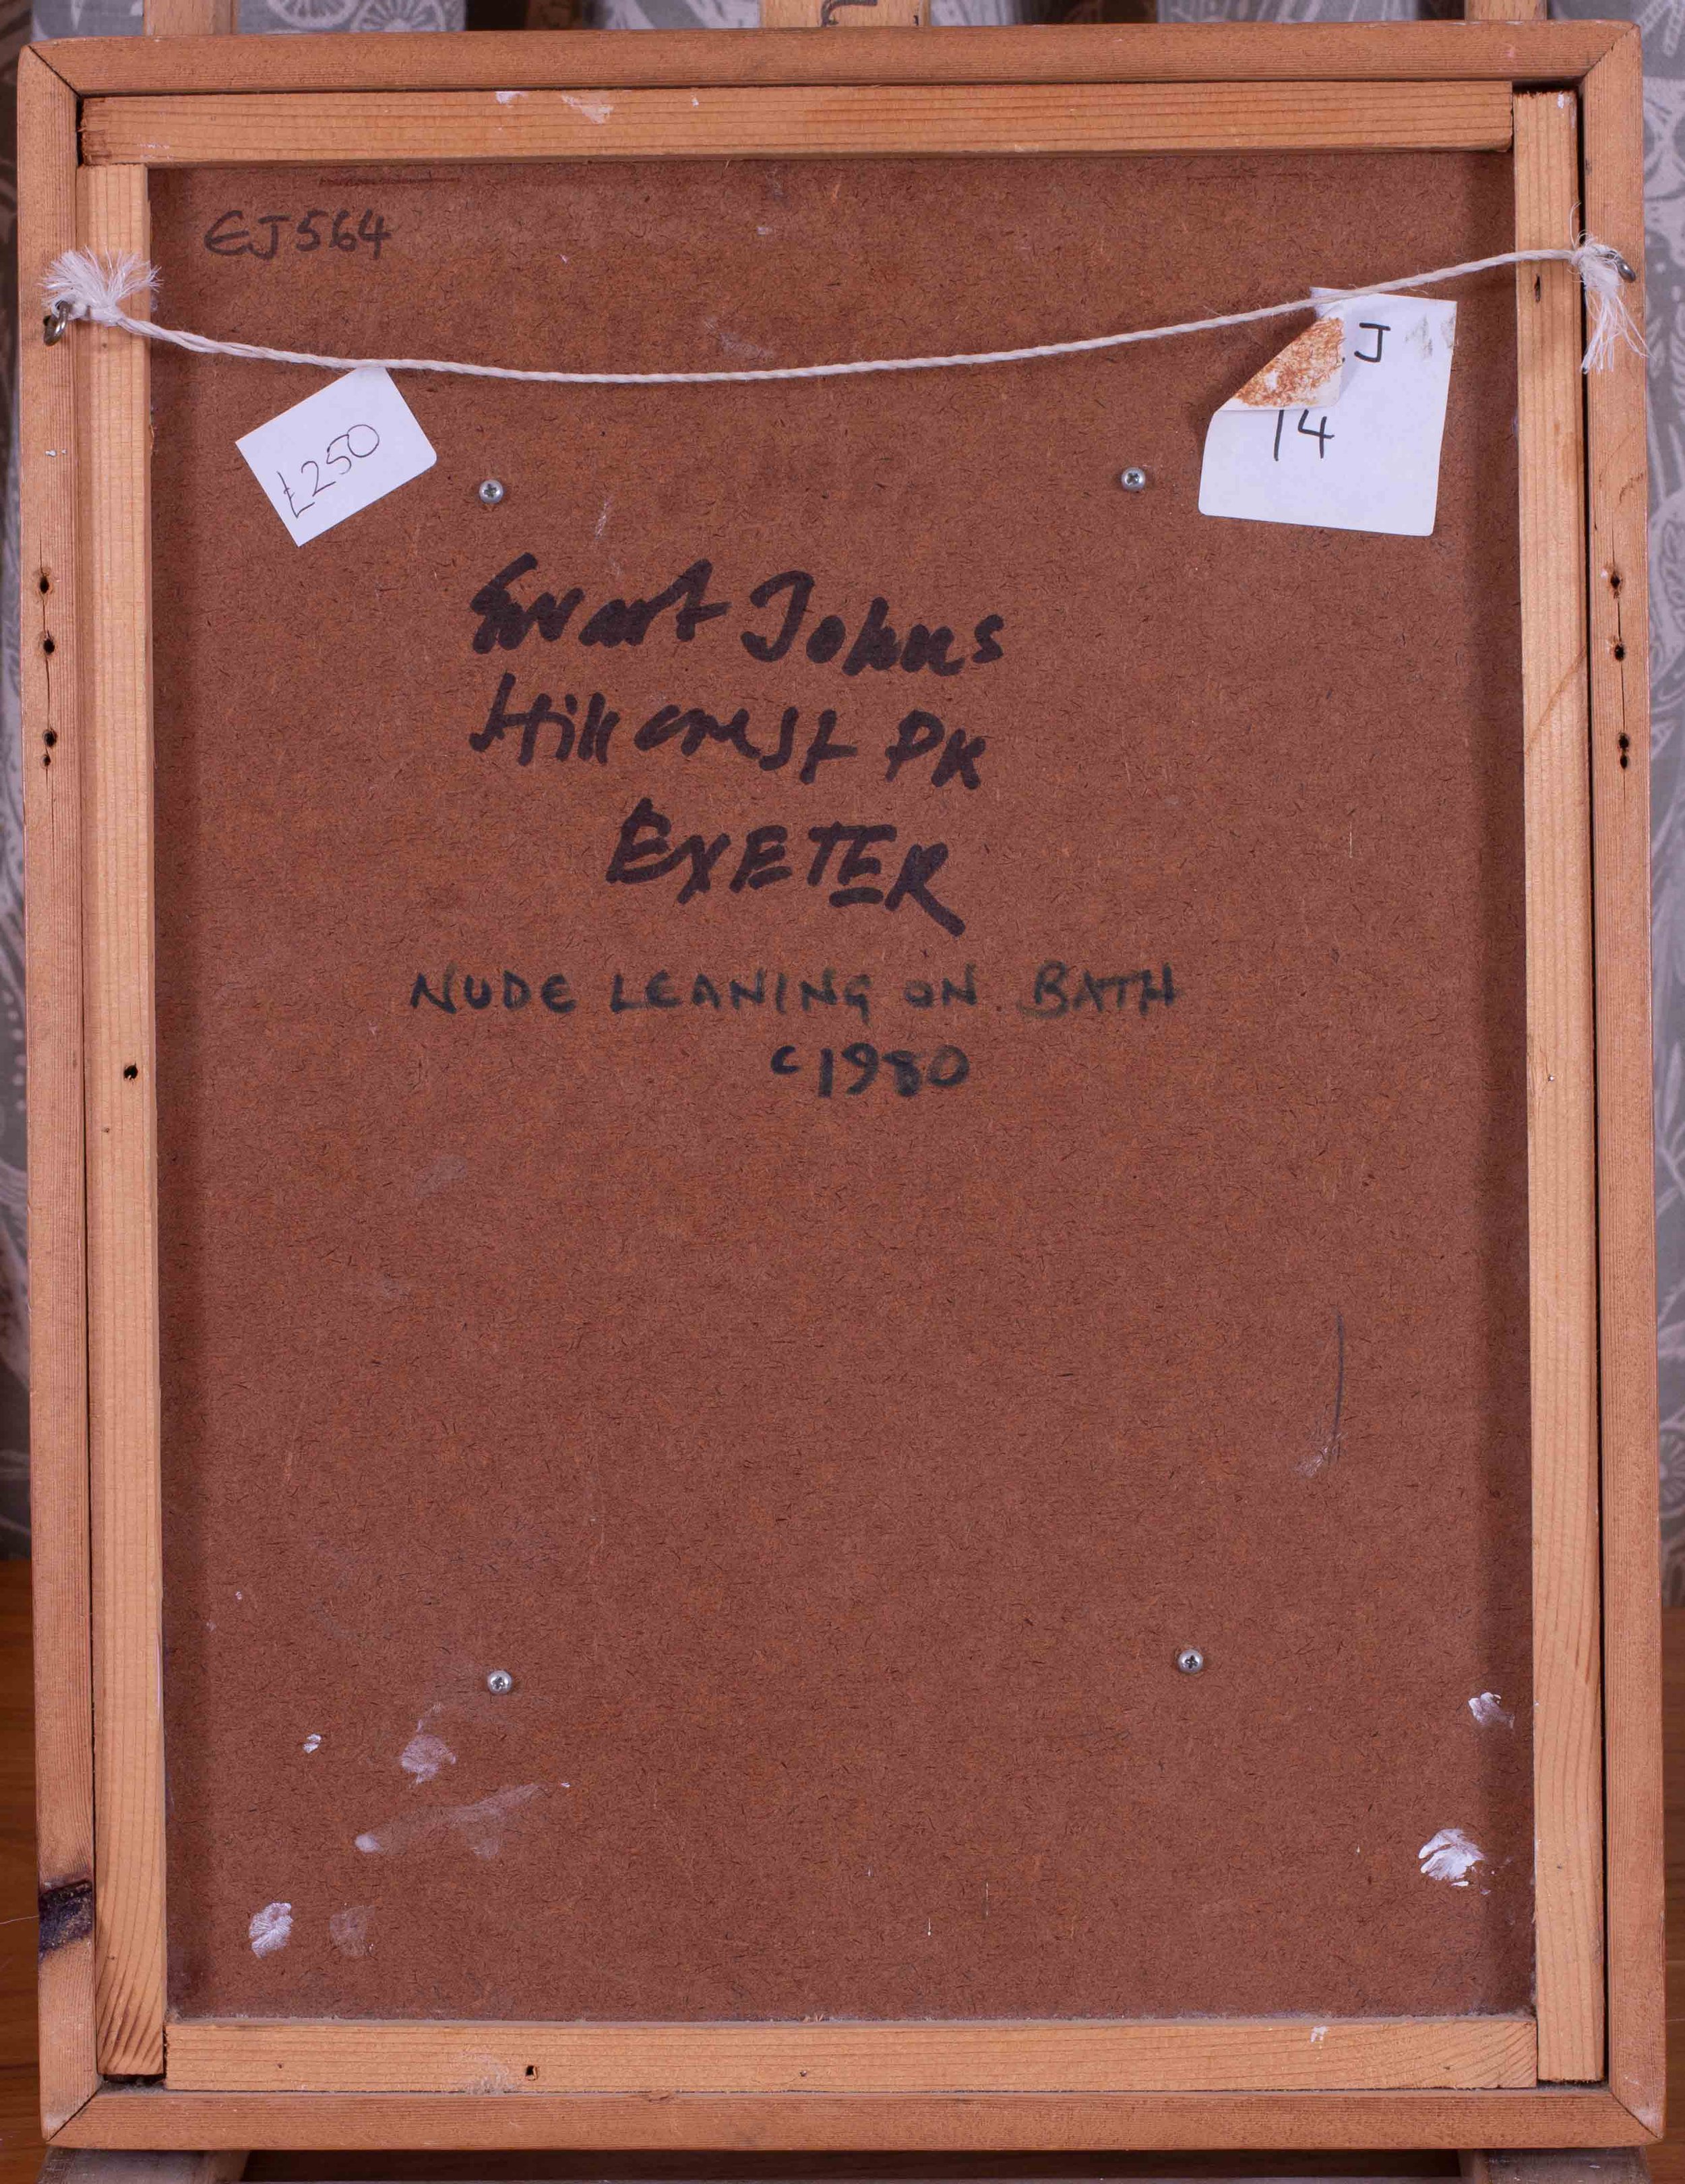 EJ564
J
14
£250
Ewart Johns
Hillcrest PK
EXETER
NUDE LEANING ON BATH
c1980